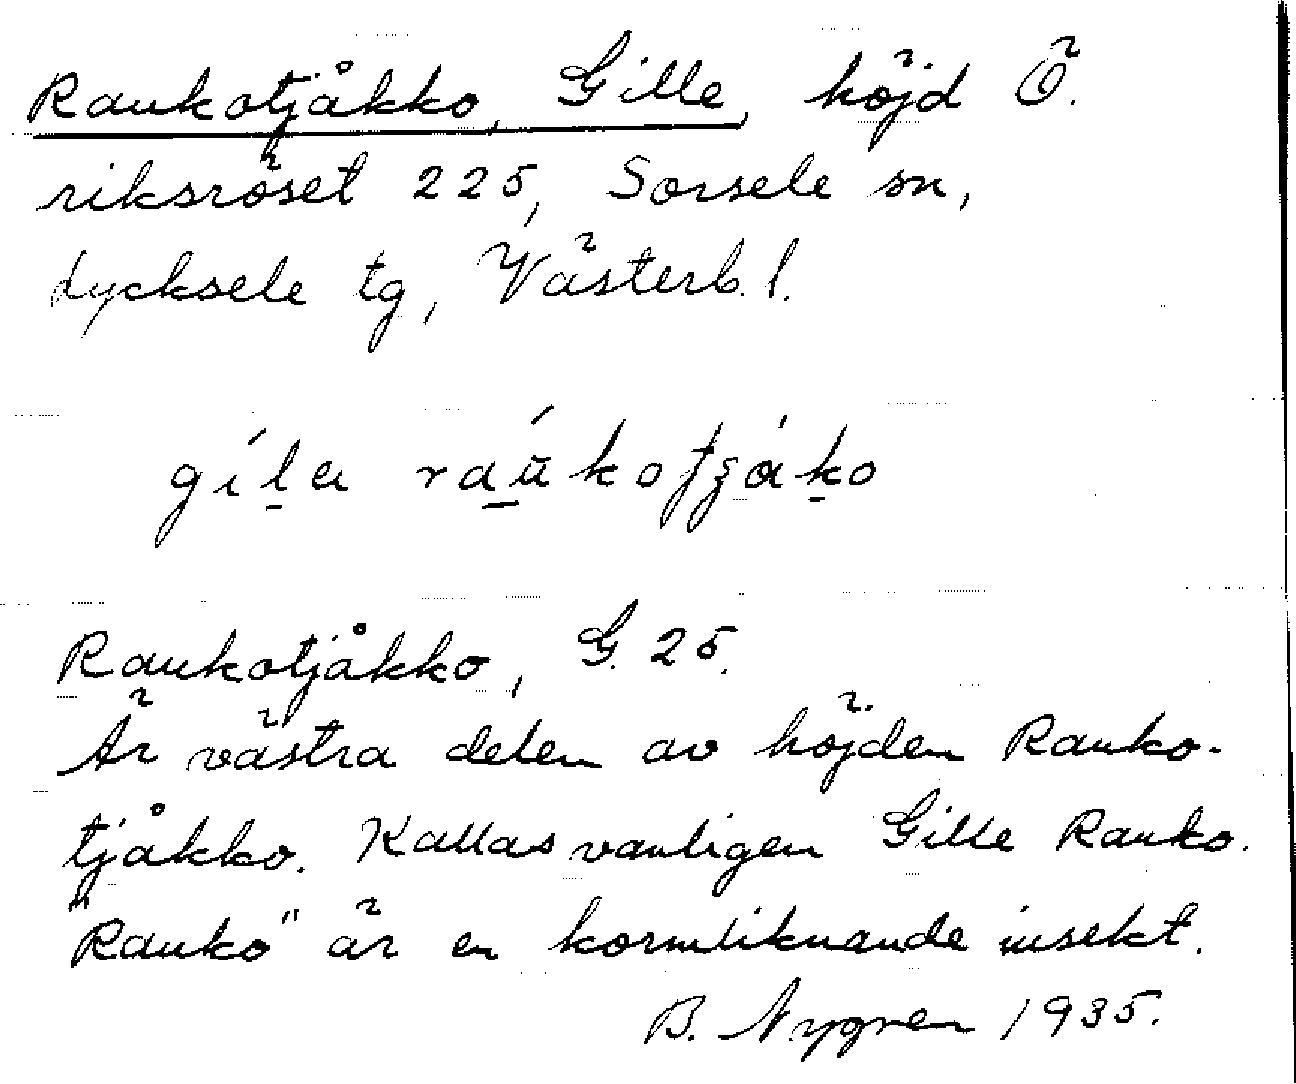 Raukotjåkko, Gille, höjd Ö.
riksröset 225, Sorsele sn,
Lycksele tg, Västerb. l.
Raukotjåkko, G. 25.
Är västra delen av höjden Rauko-
tjåkko. Kallas vanligen Gille Rauko.
"Rauko" är en kormliknande insekt.
B. Nygren 1935.